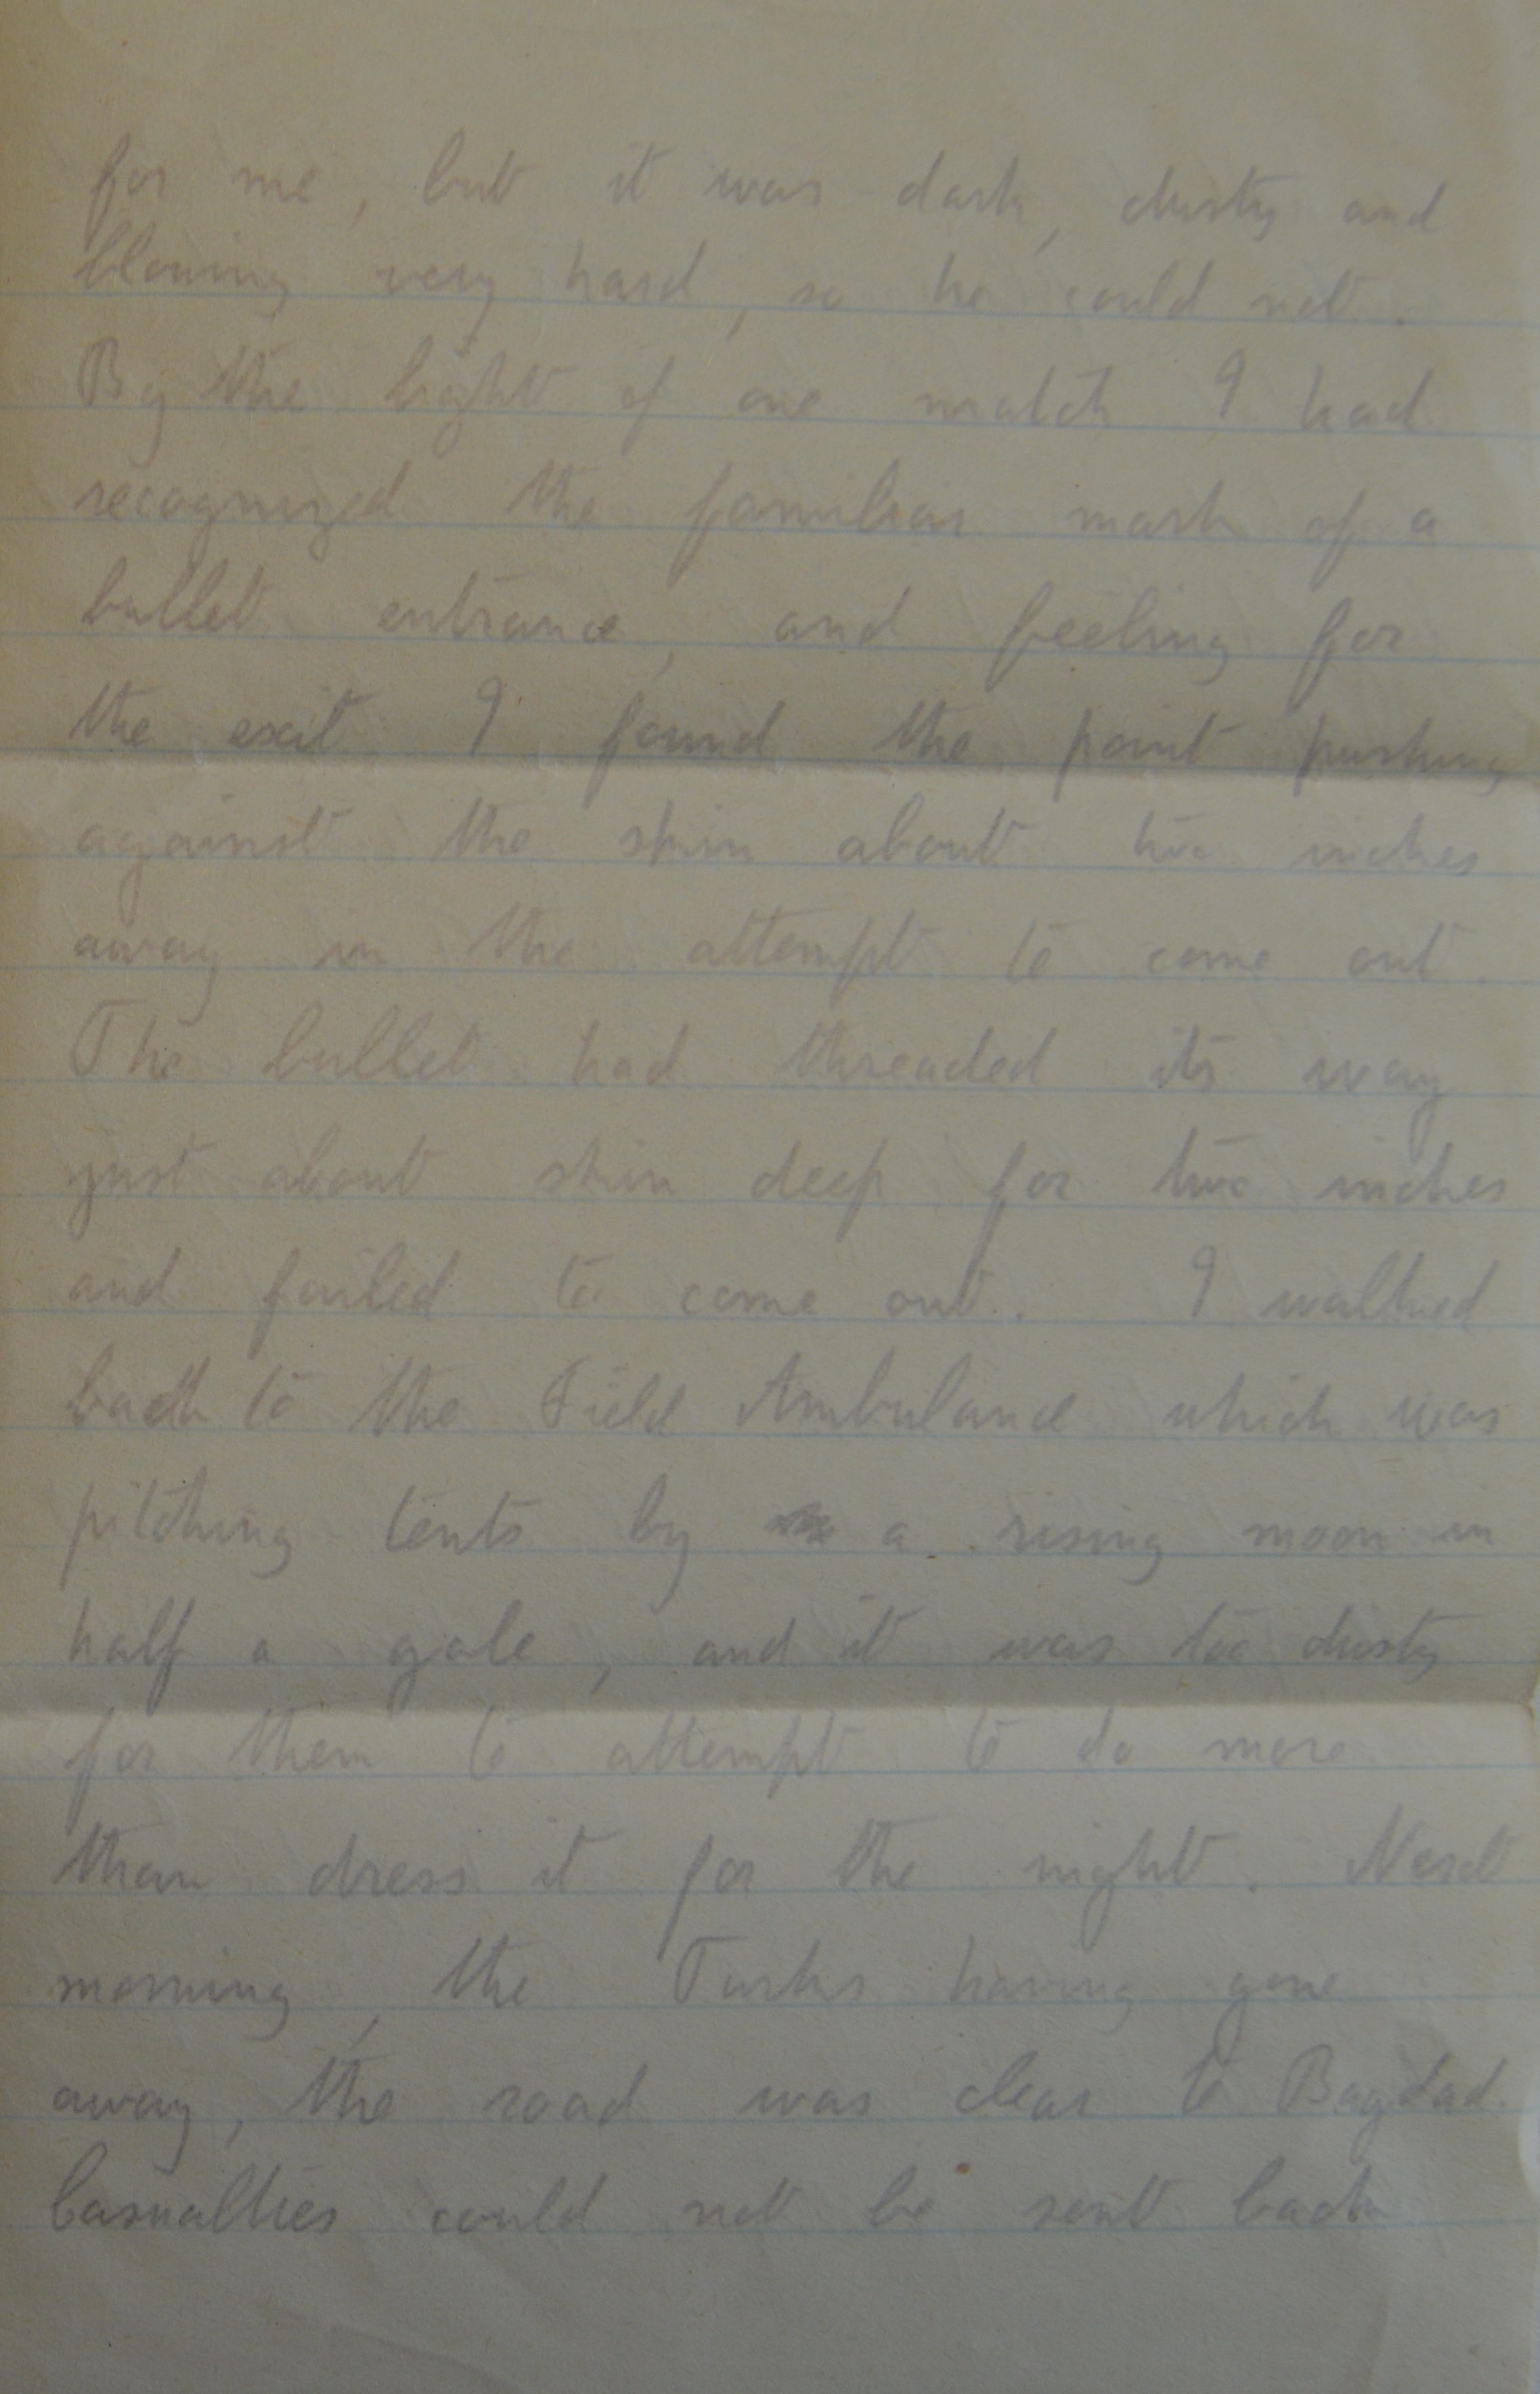 for me, but it was dark, dusty and
blowing very hard, so he could not.
By the light of one match I had
recognized the familiar mark of a
bullet entrance, and feeling for
the exit I found the point pushing
against the skin about two inches
away in the attempt to come out.
The bullet had threaded its way
just about skin deep for two inches
and failed to come out. I walked
back to the Field Ambulance which was
pitching tents by a rising moon in
half a gale, and it was too dusty
for them to attempt to do more
than dress it for the night. Next
morning, the Turks having gone
away, the road was clear to Bagdad.
Casualties could not be sent back